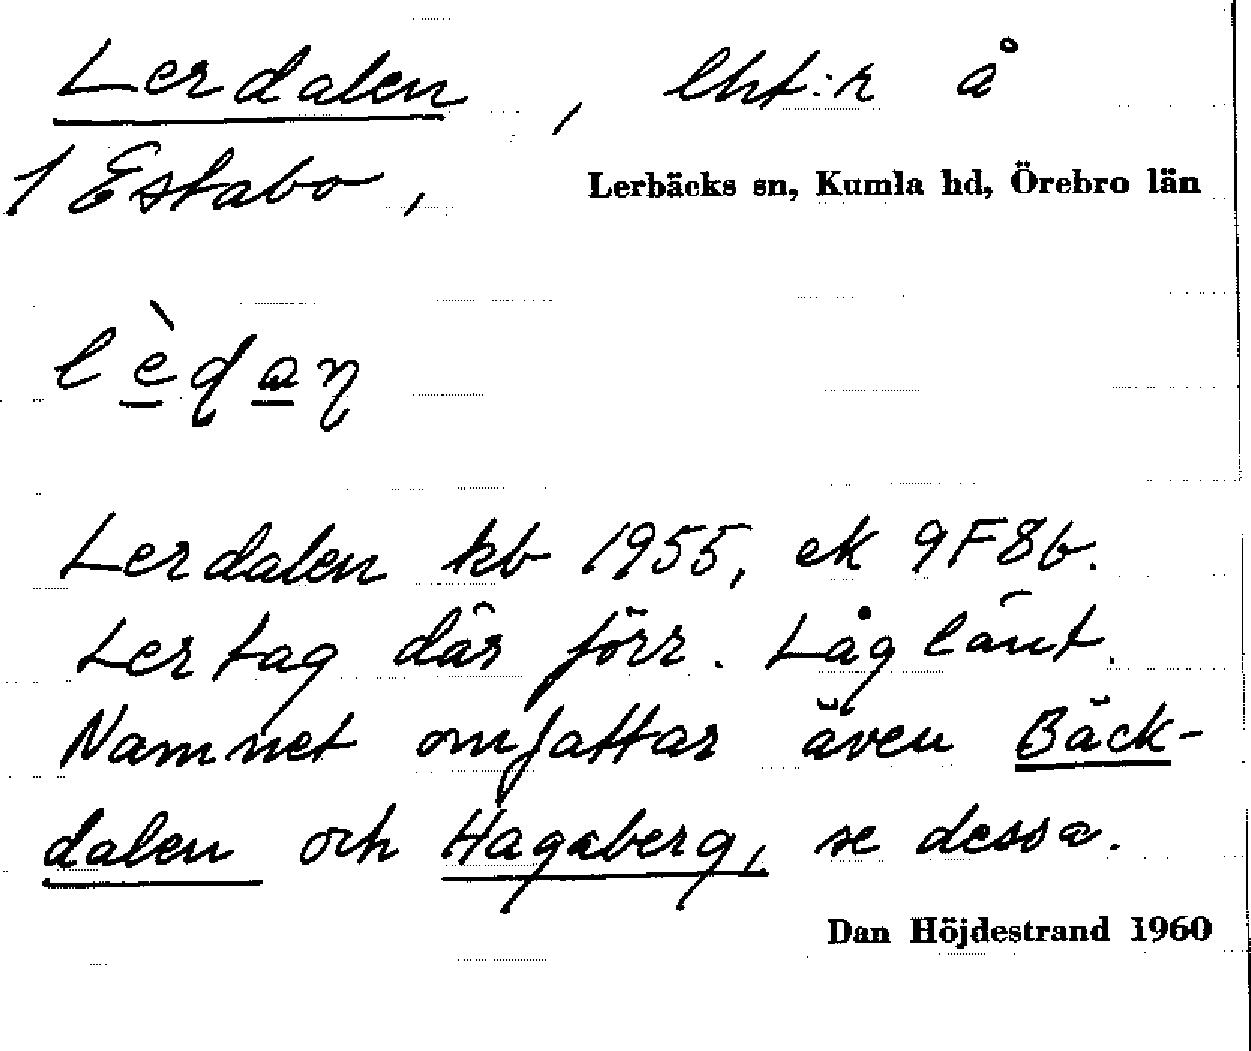 Lerdalen, lht:r å
1 Estabo,
Lerbäcks sn, Kumla hd, Örebro län
Lerdalen kb 1955, ek 9F8b.
Lertag där förr. Låglänt.
Namnet omfattar även Bäck-
dalen och Hagaberg, se dessa.
Dan Höjdestrand 1960